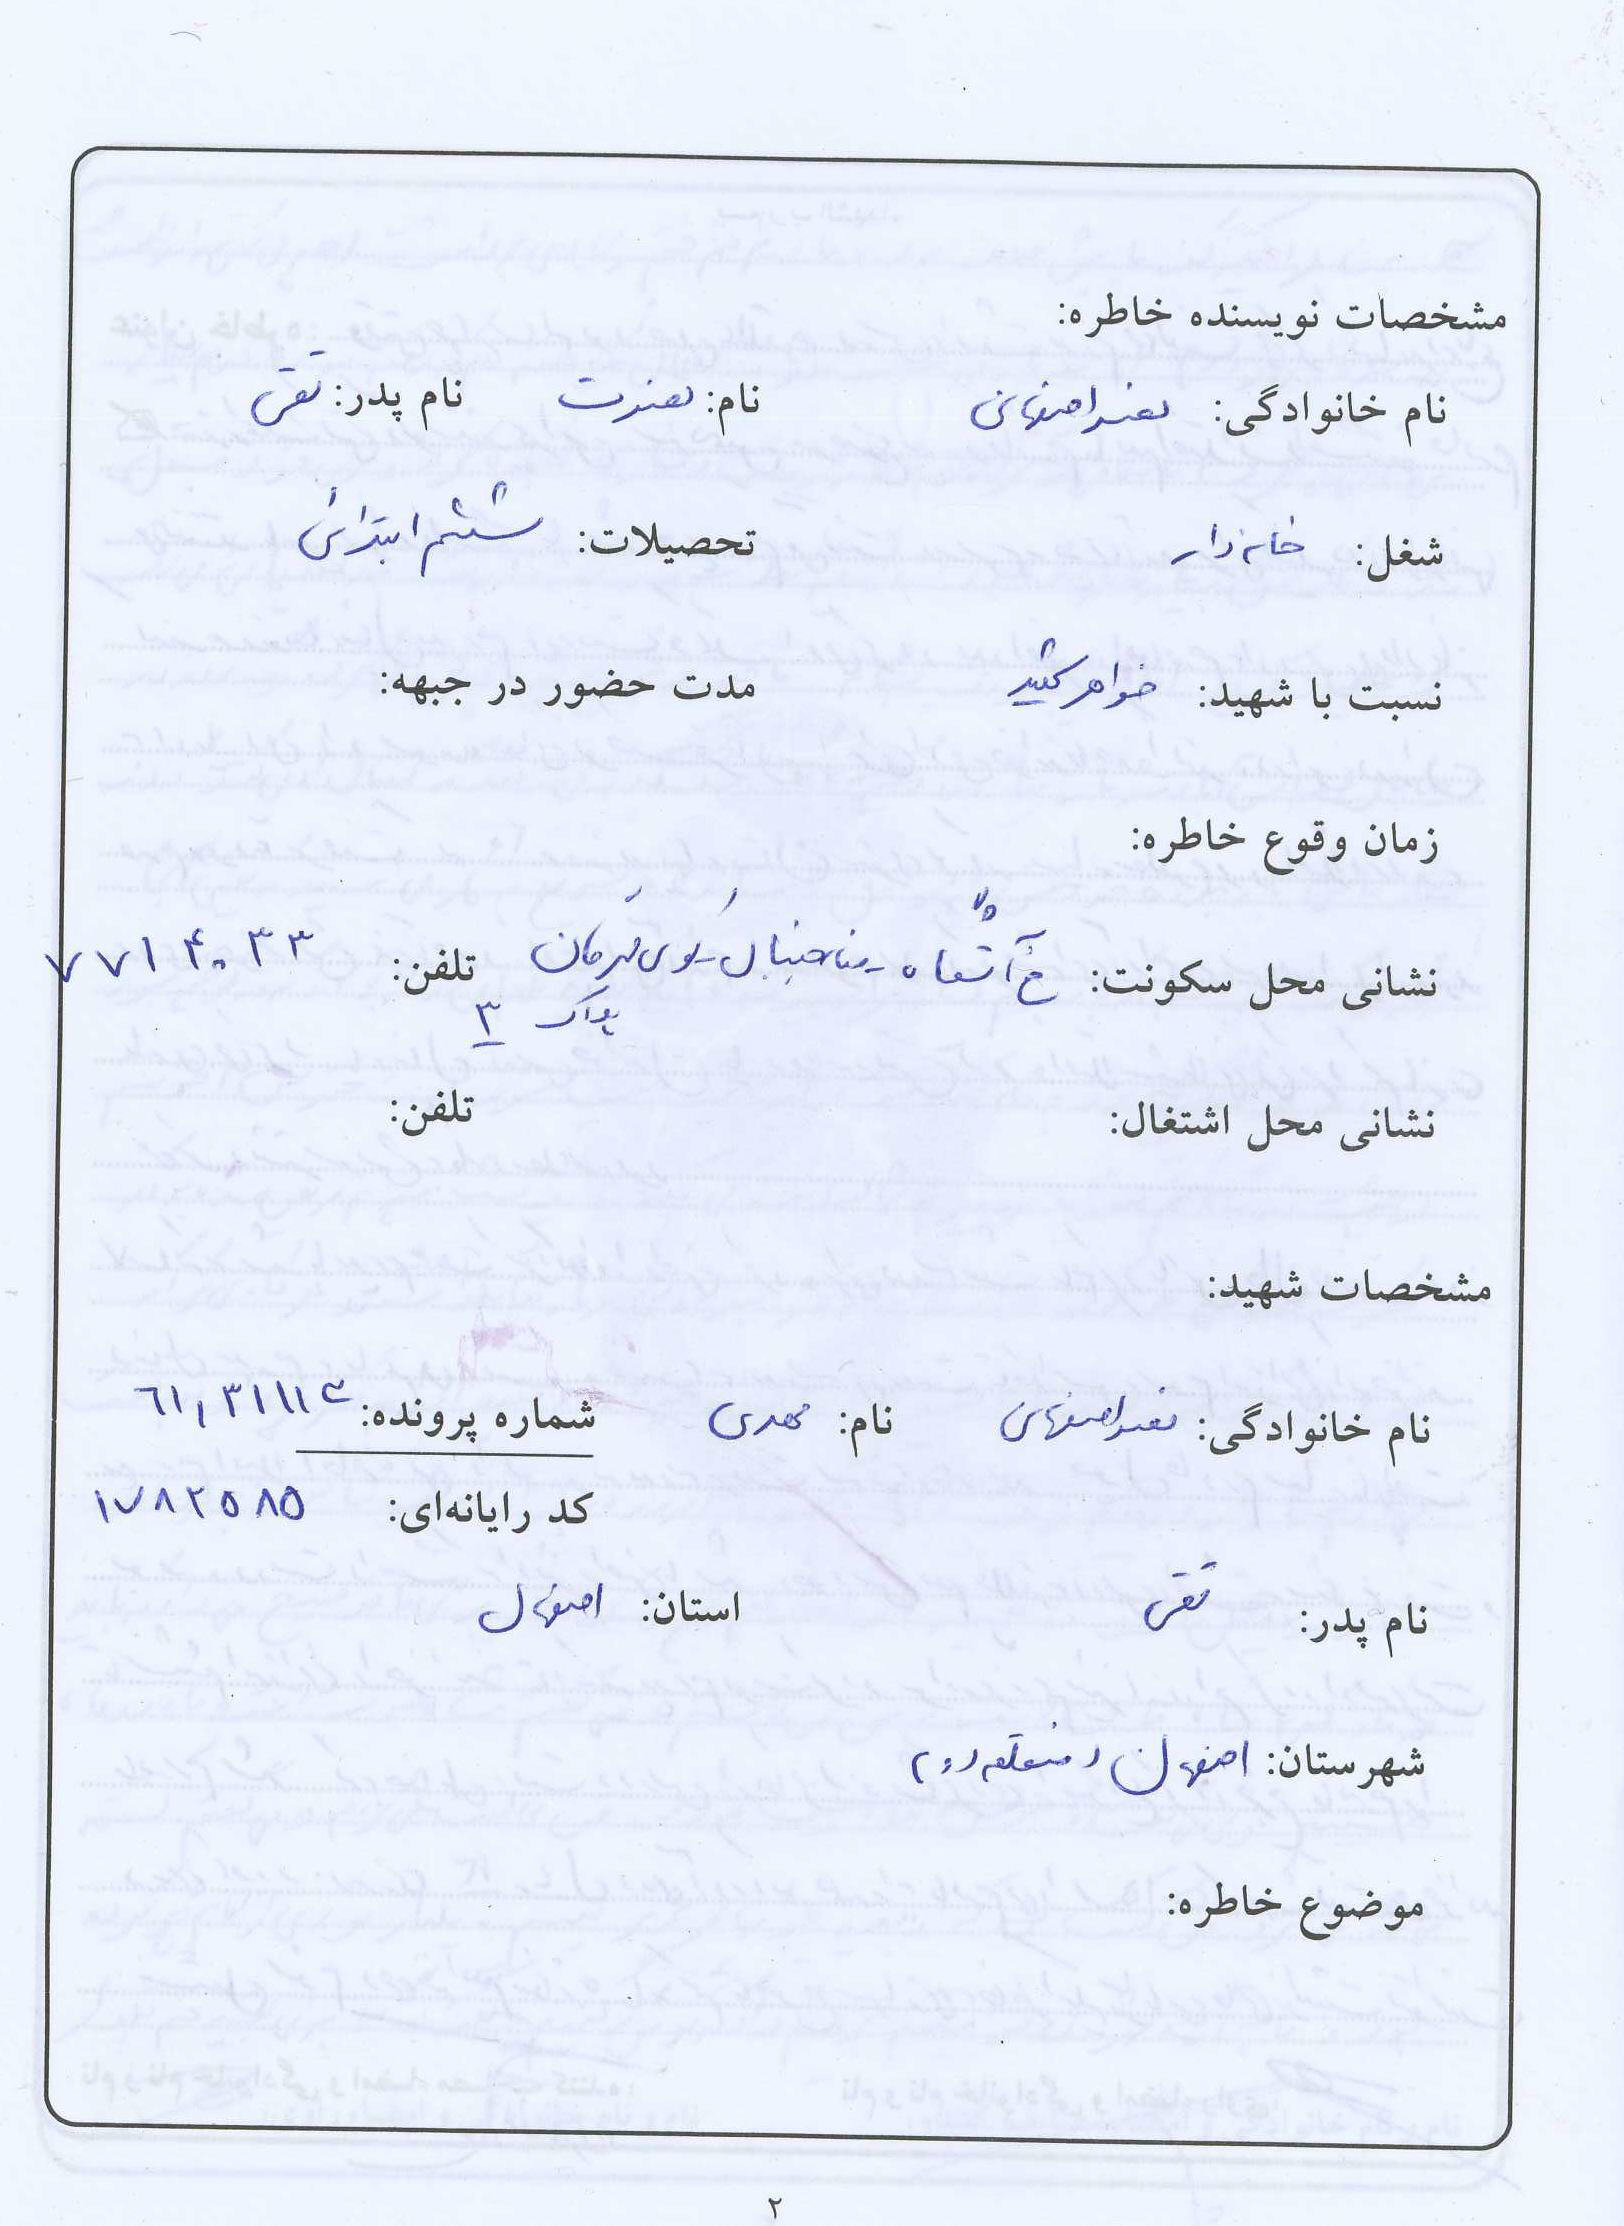 مشخصات نویسنده خاطره:
نام خانوادگی: نام: نام پدر: تقی
شغل: خانه‌دار تحصیلات: ششم ابتدائی
نسبت با شهید: خواهر شهید مدت حضور در جبهه:
زمان وقوع خاطره:
نشانی محل سکونت: خ آتشگاه کوی تلفن: ۷۷۱۴۰۳۳
پلاک ۳
نشانی محل اشتغال: تلفن:
مشخصات شهید:
نام خانوادگی: نام: مهدی شماره پرونده:
کد رایانه‌ای: ۱۷۸۲۵۸۵
نام پدر: تقی استان: اصفهان
شهرستان: اصفهان منطقه دو
موضوع خاطره:
۲